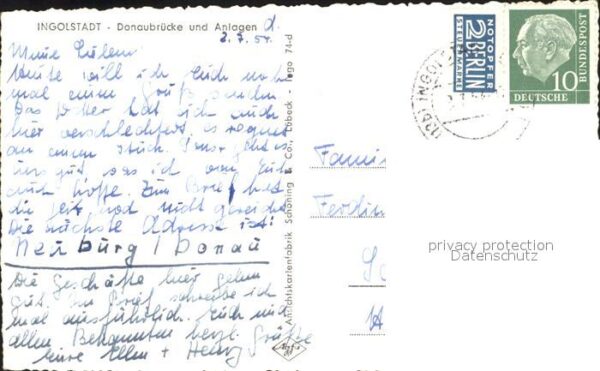 INGOLSTADT - Donaubrücke und Anlagen d.
2.7.54.
Meine Lieben!
Heute will ich Euch noch
mal einen Gruß senden
Das Wetter hat sich auch
hier verschlechtert, es regnet
an einem Stück. Sonst geht es
uns gut, was ich von Euch
auch hoffe. Zum Brief hat
die Zeit noch nicht gereicht
Die nächste Adresse ist:
Neuburg / Donau
Die Geschäfte hier gehen
gut. Im Brief schreibe ich
mal ausführlich. Euch und
allen Bekannten herzl. Grüße
Eure Ellen + Henry
Ansichtskartenfabrik Schöning & Co., Lübeck - Ingo 74-d
NOTOPFER
2 BERLIN
STEUERMARKE
DEUTSCHE BUNDESPOST
10
INGOL
Famili
Ferdin
privacy protection
Datenschutz